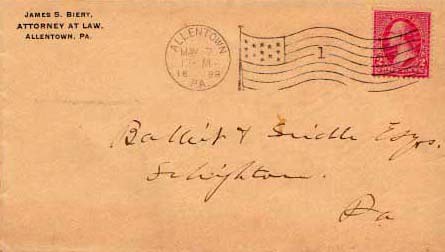 JAMES S. BIERY,
ATTORNEY AT LAW.
ALLENTOWN, PA.
ALLENTOWN
MAY 7
M
18 99
PA.
1
2 2
Esqs.
Lehighton.
Pa